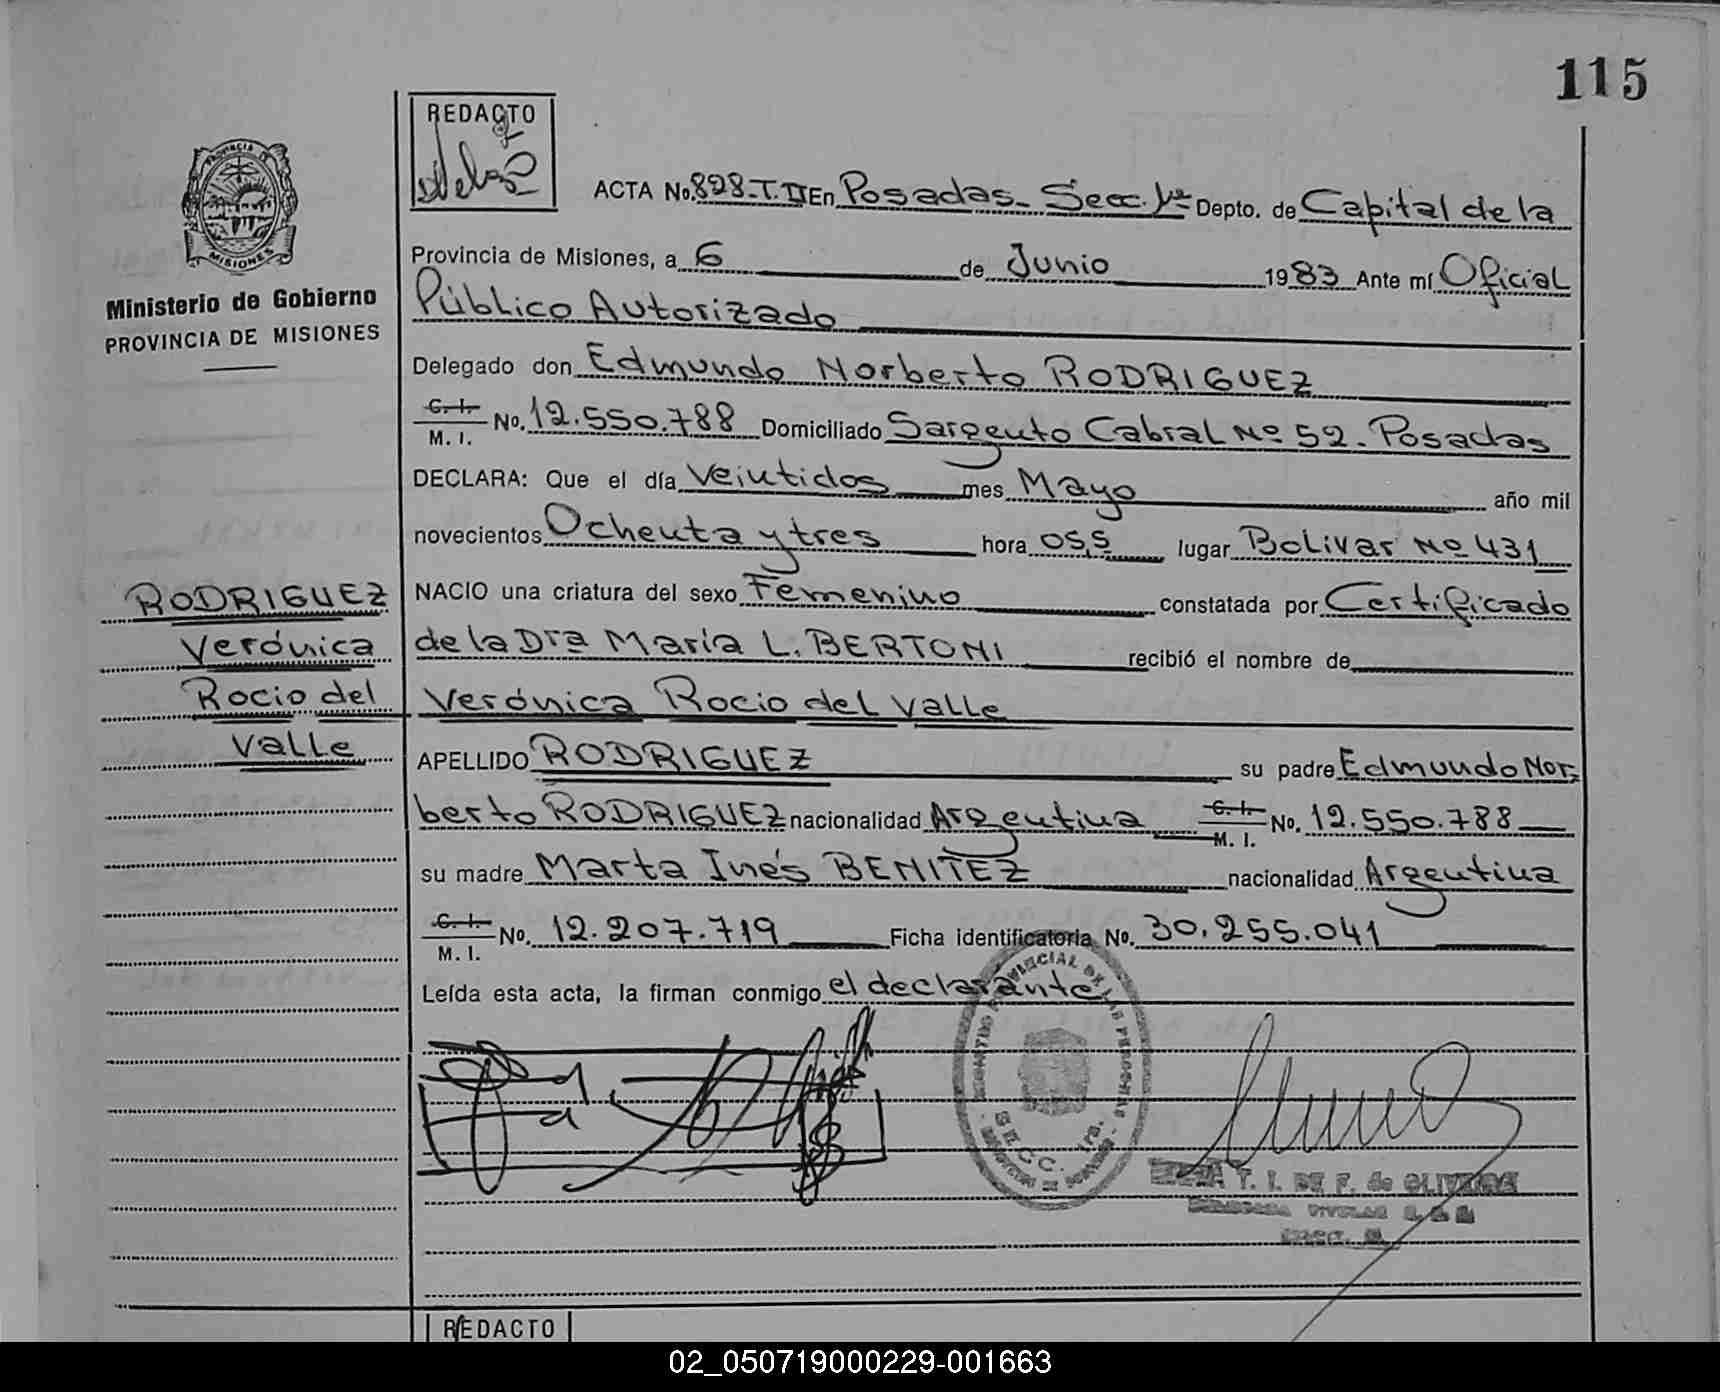 115
REDACTO
ACTA No. 828-T. II En Posadas - Secc. 1ª Depto. de Capital de la
PROVINCIA DE
MISIONES
Provincia de Misiones, a 6 de Junio 1983 Ante mí Oficial
Ministerio de Gobierno
PROVINCIA DE MISIONES
Público Autorizado
Delegado don Edmundo Norberto RODRIGUEZ
C. I.
M. I. No. 12.550.788 Domiciliado Sargento Cabral Nº 52 - Posadas
DECLARA: Que el día Veintidos mes Mayo año mil
novecientos Ochenta y tres hora 05,5 lugar Bolivar Nº 431
RODRIGUEZ
Verónica
Rocio del
Valle
NACIO una criatura del sexo Femenino constatada por Certificado
de la Dra María L. BERTONI recibió el nombre de
Verónica Rocio del Valle
APELLIDO RODRIGUEZ su padre Edmundo Nor-
berto RODRIGUEZ nacionalidad Argentina C. I. M. I. No. 12.550.788
su madre Marta Inés BENITEZ nacionalidad Argentina
C. I.
M. I. No. 12.207.719 Ficha identificatoria No. 30.255.041
Leída esta acta, la firman conmigo el declarante
PROVINCIAL DE LAS PERSONAS
SECC. 1ra.
T. I. DE F. de OLIVEIRA
REDACTO
02_050719000229-001663